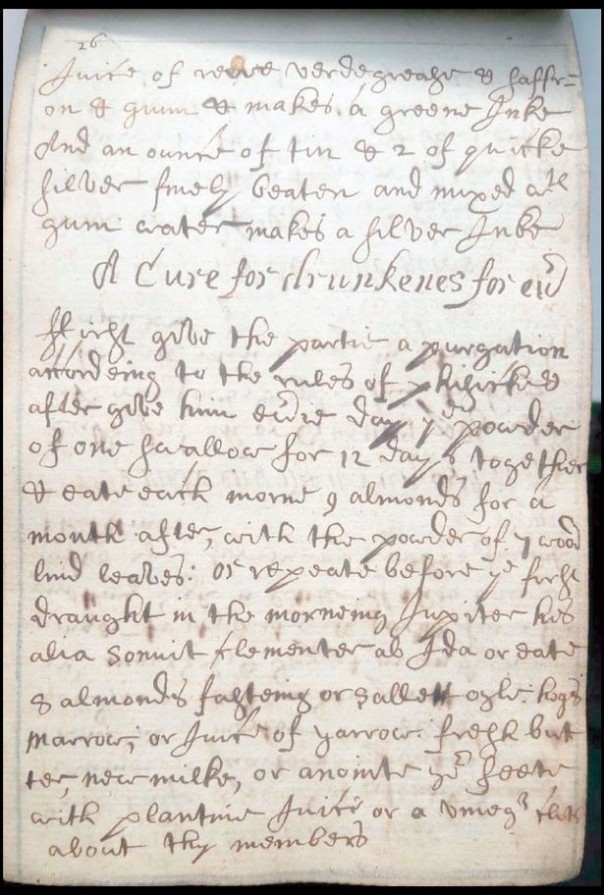 26
Juice of rewe verdegrease & saffr=
on & gum & makes a greene Inke
And an ounce of tin & 2 of quicke
silver finely beaten and mixed wth
gum water makes a silver Inke
A Cure for drunkenes for evr
ffirst give the partie a purgation
accordeing to the rules of phisicke &
after give him evrie day ye powder
of one swallow for 12 days together
& eate each morne 9 almonds for a
month after, with the powder of 7 wood
bind leaves: or repeate before ye first
draught in the morneing Jupiter his
alia sonuit clementer ab Ida or eate
8 almonds fasteing or sallett oyle hogs
marrow; or Juice of yarrow fresh but
ter, new milke, or anointe ye feete
with plantine Juice or a vinegr
about thy members